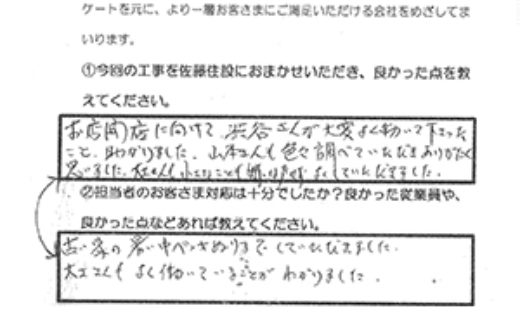 ケートを元に、より一層お客さまにご満足いただける会社をめざしてま
いります。
①今回の工事を佐藤住設におまかせいただき、良かった点を教
えてください。
お店開店に向けて 渋谷さんが大変よく動いて下さった
こと、助かりました。山本さんも色々調べていただきありがたく
思いました。 していただきました。
②担当者のお客さま対応は十分でしたか？良かった従業員や、
良かった点などあれば教えてください。
古い家の 寒い中ペンキぬりまでしていただきました。
大工さんも よく働いていることが わかりました。